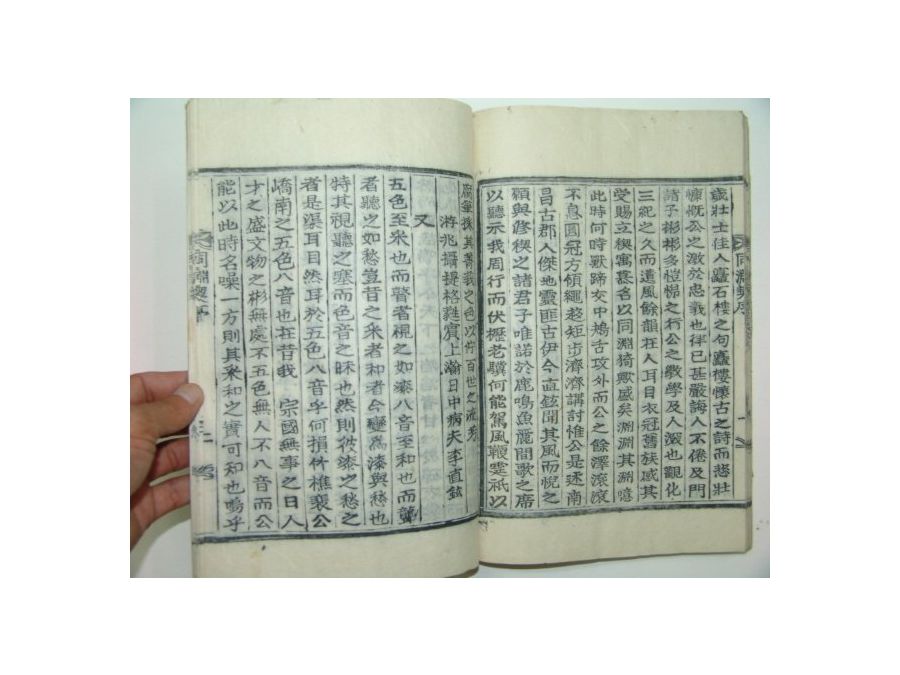 歲壯士佳人矗石樓之句矗樓懷古之詩而悲壯
慷慨公之激於忠義也伴已甚嚴誨人不倦及門
諸子彬彬多愷悌之行公之敎學及人澂也觀化
三紀之久而遺風餘韻在人耳目衣冠舊族感其
受賜立稧寓慕名以同淵猗歟盛矣淵淵其淵噫
此時何時獸蹄交中鴂舌攻外而公之餘澤滾滾
不息圓冠方領繩趍矩步濟濟講討惟公是述南
昌古郡人傑地靈匪古伊今直鉉聞其風而悅之
願與修稧之諸君子唯諾於鹿鳴魚麗間歌之席
以聽示我周行而伏櫪老驥何能駕風鞭雯祇以
其善哉之色以作百世之流芳
游兆攝提格蕤賓上澣日中病夫李直鉉
又
五色至采也而瞽者視之如漆八音至和也而聾
者聽之如愁豈昔之采者和者今變爲漆與愁也
特其視聽之塞而色音之昧也然則彼漆之愁之
者是渠耳目然耳於五色八音乎何損竹樵裵公
嶠南之五色八音也在昔我 宗國無事之日人
才之盛文物之彬無處不五色無人不八音而公
能以此時名噪一方則其采和之實可知也嗚乎
同淵契序